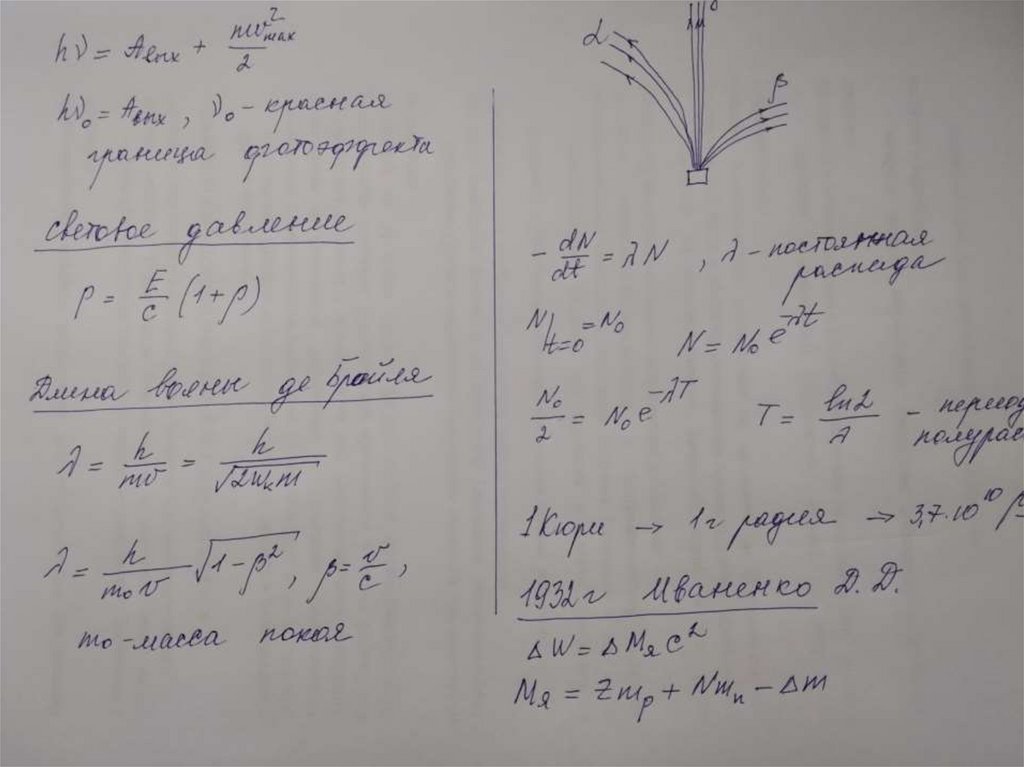 hν = Aвых + mv²max / 2
hν₀ = Aвых , ν₀ - красная
граница фотоэффекта
световое давление
p = E/c (1+ρ)
Длина волны де Бройля
λ = h/mv = h/√2Wₖm
λ = h/m₀v √1-β² , β = v/c ,
m₀ - масса покоя
α
β
- dN/dt = λN , λ - постоянная
распада
N|t=0 = N₀ N = N₀e^-λt
N₀/2 = N₀e^-λT T = ln2/λ - период
полурас
1 Кюри → 1г радия → 3,7·10¹⁰
1932г Иваненко Д.Д.
ΔW = ΔMяc²
Mя = Zmp + Nmn - Δm